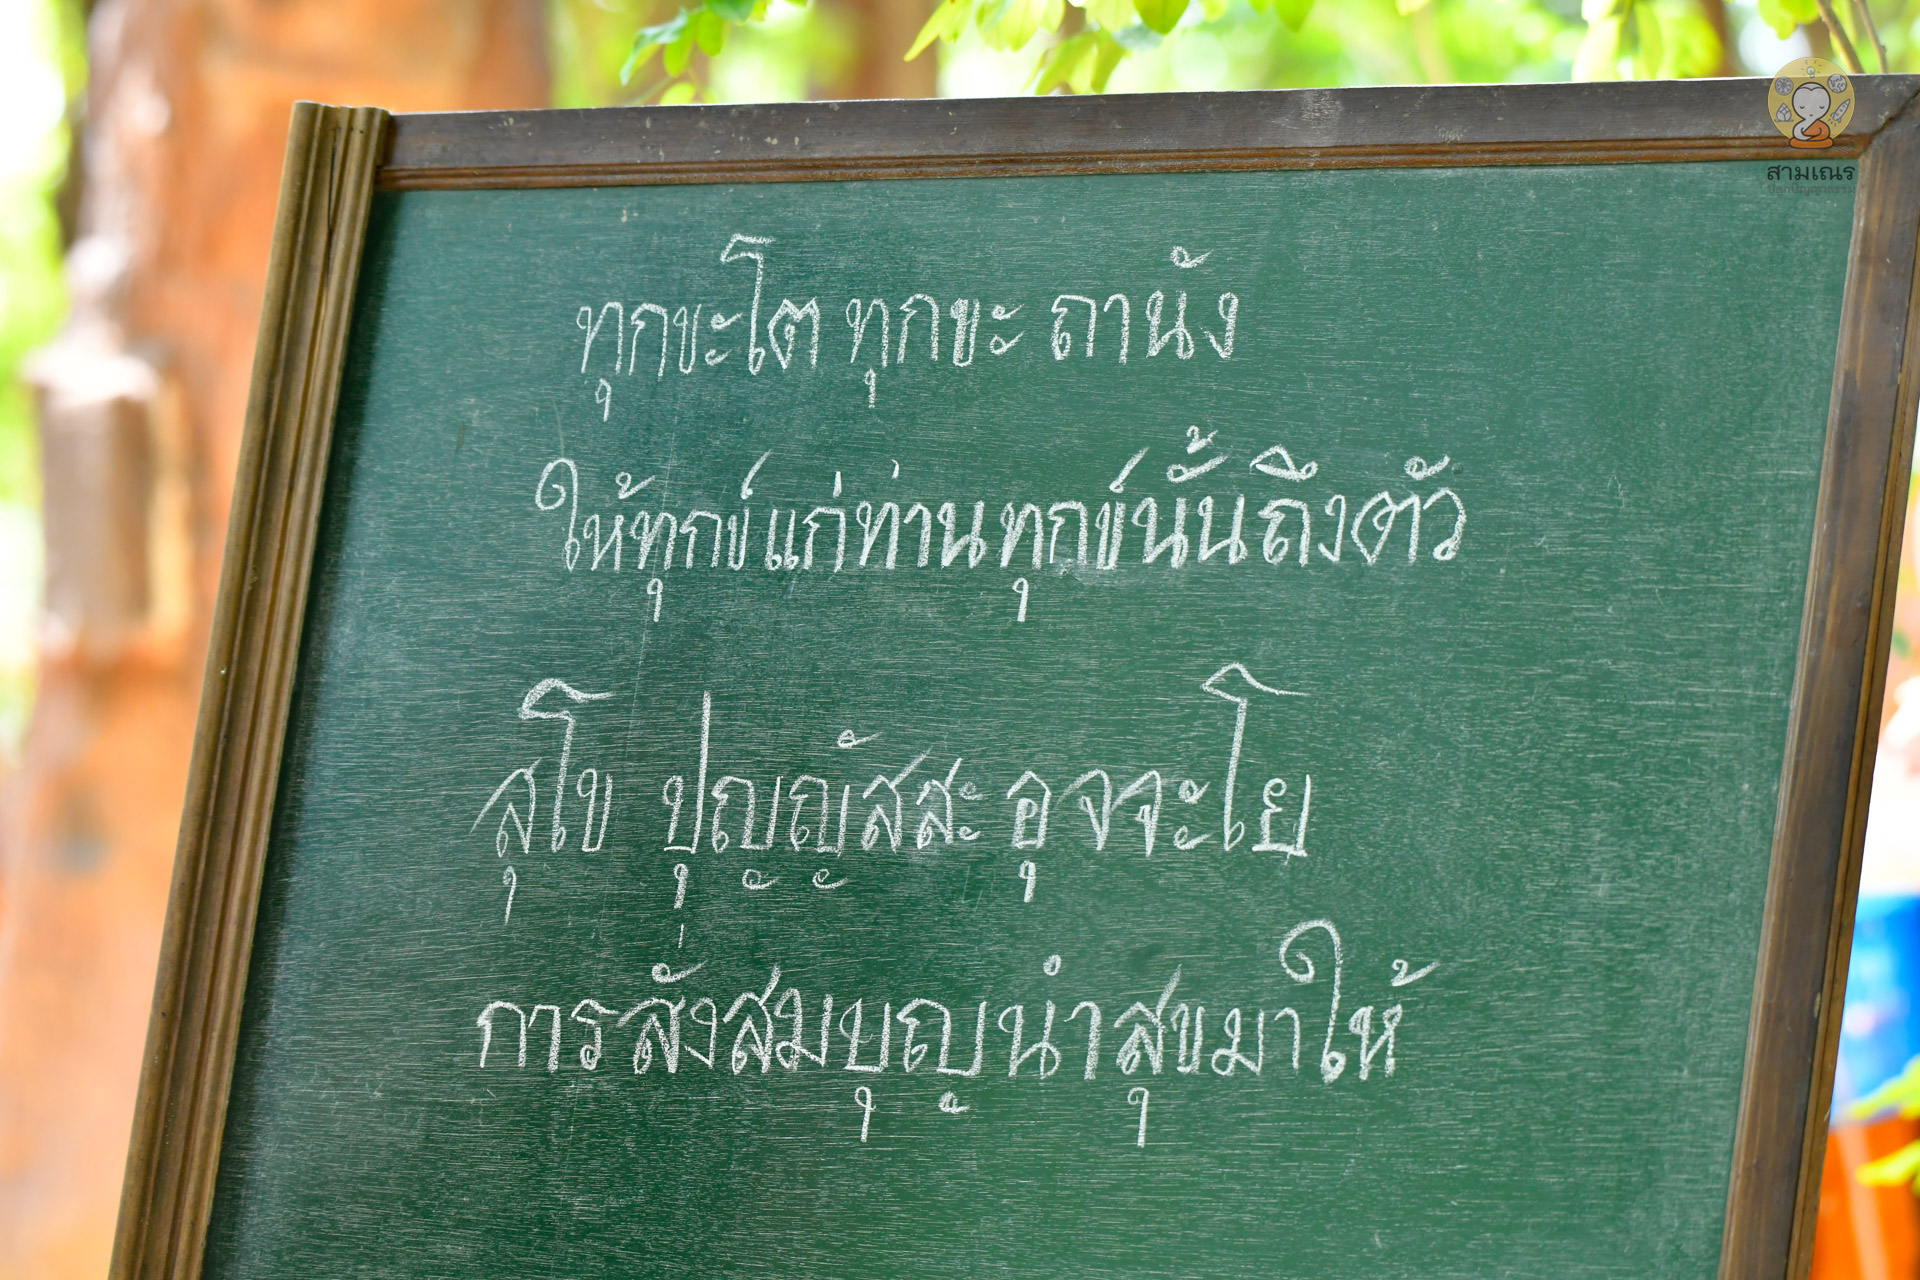 สามเณร
ปลูกปัญญาธรรม
ทุกขะโต ทุกขะ ถานัง
ให้ทุกข์แก่ท่านทุกข์นั้นถึงตัว
สุโข ปุญญัสสะ อุจจะโย
การสั่งสมบุญนำสุขมาให้